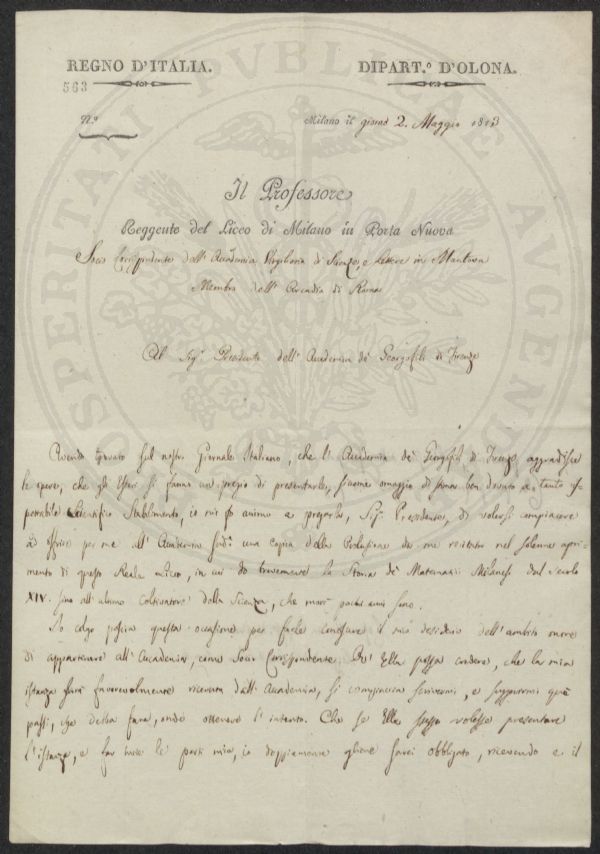 REGNO D'ITALIA. DIPART.º D'OLONA.
563
N.º Milano il giorno 2. Maggio 1813
Il Professore
Reggente del Liceo di Milano in Porta Nuova
Socio Corrispondente dell'Accademia Virgiliana di Scienze, e Lettere in Mantova
Membro dell'Arcadia di Roma
Al Sig.r Presidente dell'Accademia de' Georgofili di Firenze
Avendo trovato sul nostro Giornale Italiano, che l'Accademia de' Georgofili di Firenze aggradisce
le opere, che gli si fanno un pregio di presentarle, siccome omaggio di ben dovuto a tanto ris-
pettabile Scientifico Stabilimento, io mi fo animo a pregarla, Sig.r Presidente, di volersi compiacere
di offrire per me all'Accademia una copia della Prolusione da me recitata nel solenne apri-
mento di questo Reale Liceo, in cui do brevemente la Storia de' Matematici Milanesi dal Secolo
XIV. sino all'ultimo coltivatore della Scienza, che morì pochi anni sono.
Io colgo poscia questa occasione per farle conoscere il mio desiderio dell'ambito onore
di appartenere all'Accademia, come Socio Corrispondente. Ella possa credere, che la mia
istanza sarà favorevolmente ricevuta dall'Accademia, si compiaccia scrivermi, e suggerirmi quei
passi, che debba fare, onde ottenere l'intento. Che se Ella stessa volesse presentare
l'istanza, e far le parti mie, io doppiamente gliene sarei obbligato, ricevendo e il
PROSPERITATI PVBLICAE AVGENDAE